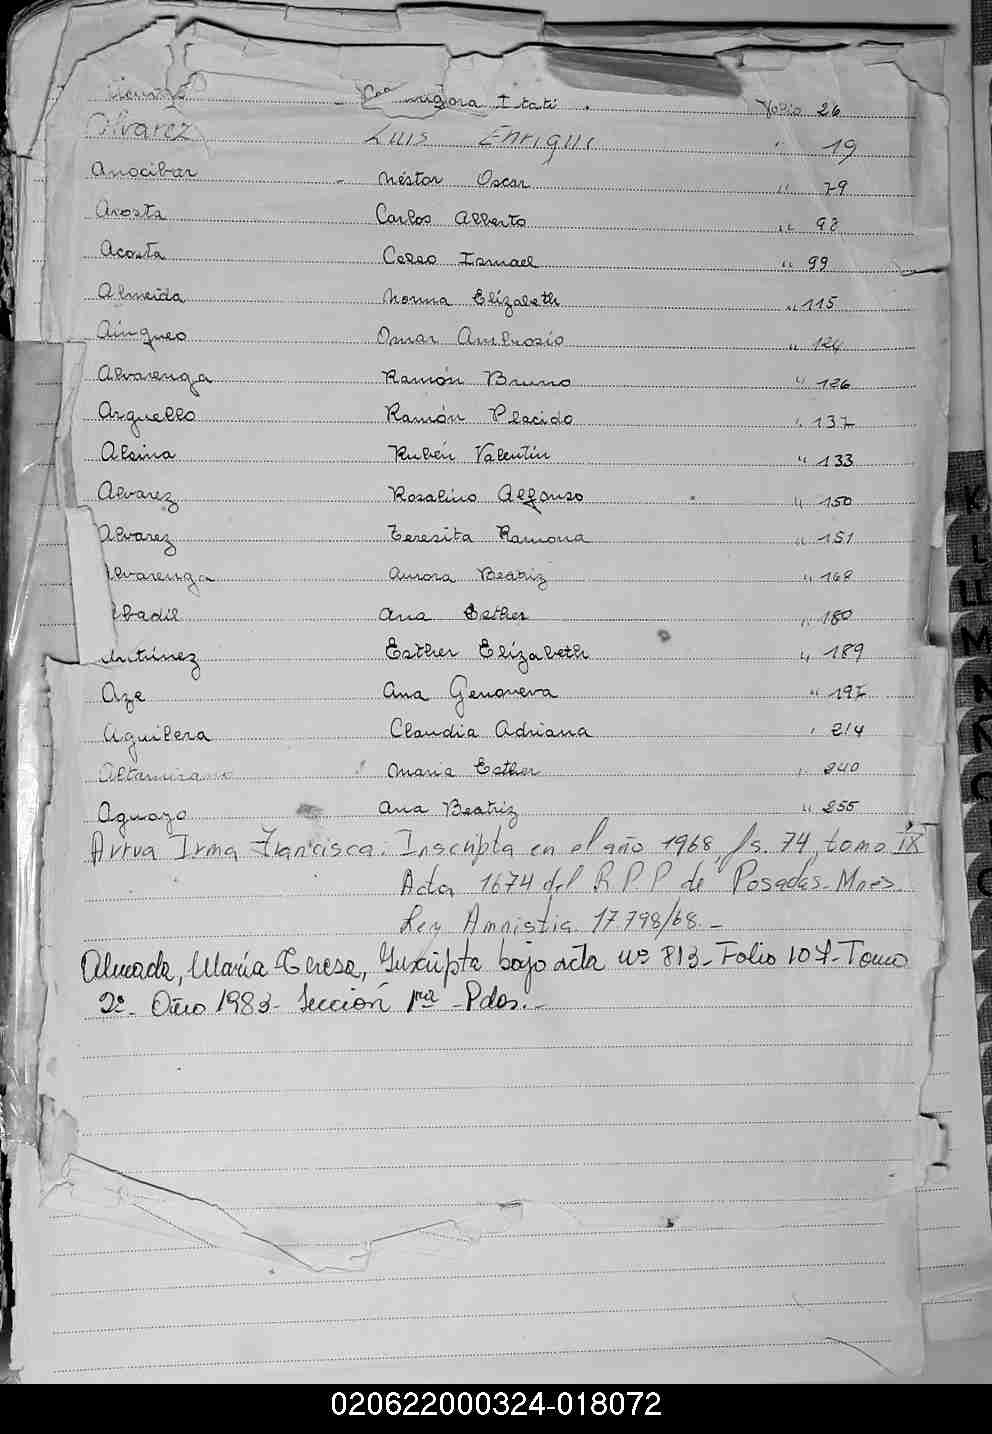 Itatí Folio 26
Alvarez Luis Enrique " 19
Anocibar - Néstor Oscar " 79
Acosta Carlos Alberto " 98
Acosta Celso Ismael " 99
Almeida Norma Elizabeth " 115
Aingueo Omar Ambrosio " 124
Alvarenga Ramón Bruno " 126
Arguello Ramón Placido " 137
Alsina Rubén Valentín " 133
Alvarez Rosalino Alfonso " 150
Alvarez Teresita Ramona " 151
Alvarenga Aurora Beatriz " 168
Abadil Ana Esther " 180
Antúnez Esther Elizabeth " 189
Aze Ana Genoveva " 197
Aguilera Claudia Adriana " 214
Altamirano Maria Esther " 240
Aguayo Ana Beatriz " 255
Irma Francisca. Inscripta en el año 1968 fs. 74, tomo IX
Acta 1674 del R.P.P de Posadas-Mnes.
Ley Amnistia 17.798/68.-
Almada, María Teresa, Inscripta bajo acta nº 813-Folio 107-Tomo
2º- Año 1983- Sección 1ra -Pdas.-
K
L
E
M
N
Ñ
O
020622000324-018072